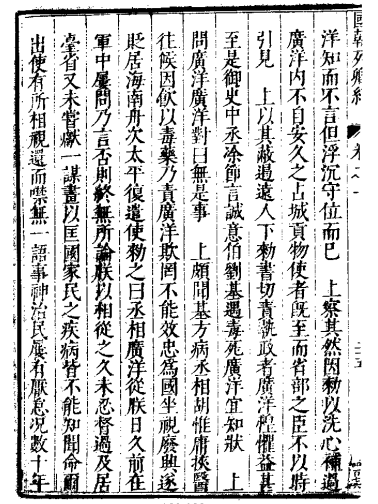 國朝列卿紀
卷之一
洋知而不言但浮沉守位而已　上察其然因勑以洗心補過
廣洋內不自安久之占城貢物使者旣至而省部之臣不以時
引見　上以其蔽遏遠人下勑書切責執政者廣洋惶懼益甚
至是御史中丞涂節言誠意伯劉基遇毒死廣洋宜知狀　上
問廣洋廣洋對曰無是事　上頗聞基方病丞相胡惟庸挾醫
往候因飲以毒藥乃責廣洋欺罔不能效忠爲國坐視廢興遂
貶居海南舟次太平復遣使勑之曰丞相廣洋從朕日久前在
軍中屢問乃言否則終無所論朕以相從之久未忍督過及居
臺省又未嘗獻一謀畫以匡國家民之疾病皆不能知間命爾
出使有所相視還而噤無一語事神治民屢有厭怠況數十年